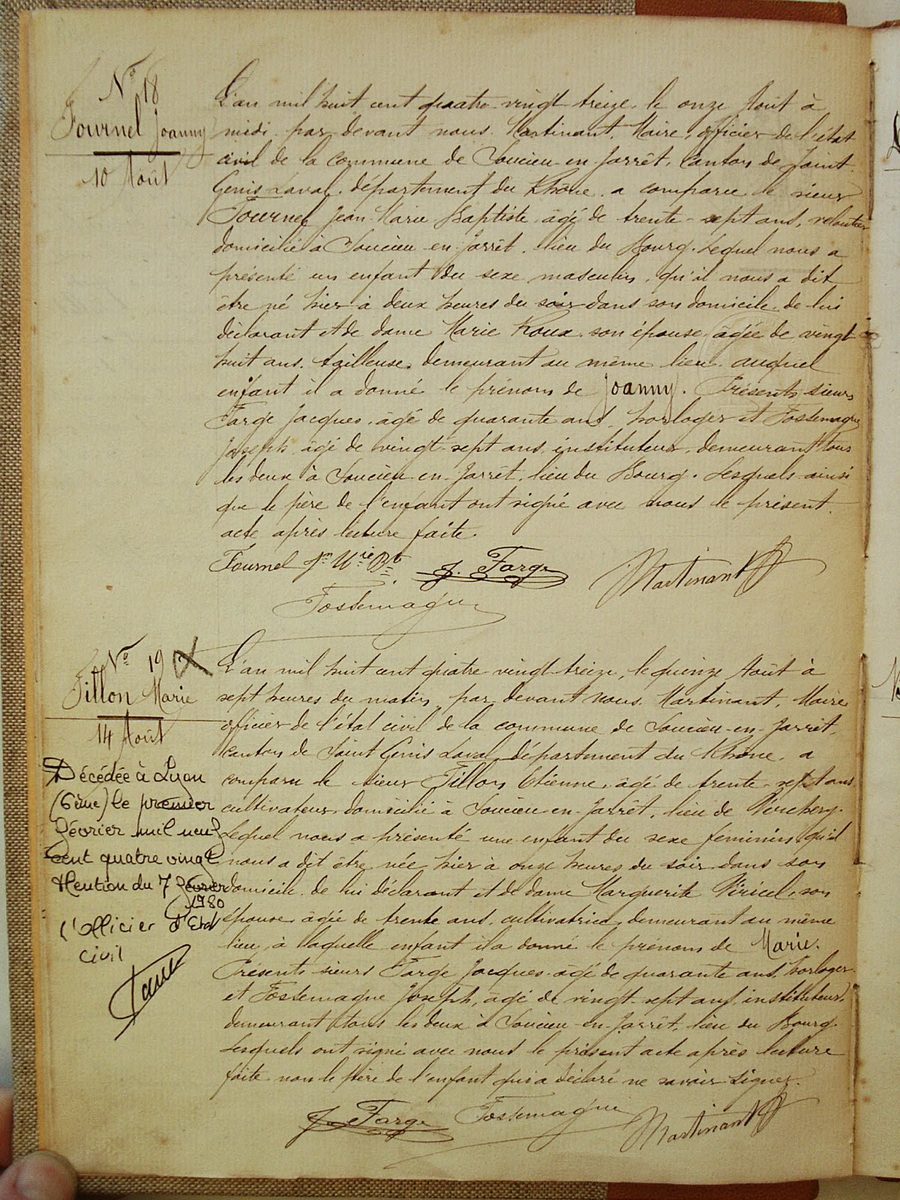 N° 18
Fournel Joanny
10 Août
L'an mil huit cent quatre vingt treize le onze Août à
midi par devant nous Martinant, Maire, officier de l'état
civil de la commune de Soucieu-en-Jarrêt, canton de Saint-
Genis Laval, département du Rhône, a comparu le sieur
Fournel Jean Marie Baptiste, âgé de trente-sept ans, veloutier
domicilié à Soucieu-en-Jarrêt, lieu du Bourg. Lequel nous a
présenté un enfant du sexe masculin, qu'il nous a dit
être né hier à deux heures du soir dans son domicile, de lui
déclarant et de dame Marie Roux, son épouse, âgée de vingt
huit ans, tailleuse, demeurant au même lieu auquel
enfant il a donné le prénom de Joanny. Présents sieurs
Farge Jacques, âgé de quarante ans, horloger et Fostemagne
Joseph, âgé de vingt-sept ans, instituteur, demeurant tous
les deux à Soucieu-en-Jarrêt, lieu du Bourg. Lesquels ainsi
que le père de l'enfant ont signé avec nous le présent
acte après lecture faite.
Fournel Jn Mrie Bte J. Farge Martinant
Fostemagne
N° 19
Fillon Marie
14 Août
Décédée à Lyon
(6ème) le premier
février mil neuf
cent quatre vingt
Mention du 7 février
1980
L'Officier d'Etat
civil
L'an mil huit cent quatre vingt treize, le quinze Août à
sept heures du matin, par devant nous, Martinant, Maire
officier de l'état civil de la commune de Soucieu-en-Jarrêt,
canton de Saint Genis Laval, département du Rhône, a
comparu le sieur Fillon Etienne, âgé de trente-sept ans
cultivateur, domicilié à Soucieu-en-Jarrêt, lieu de
Lequel nous a présenté une enfant du sexe féminin, qu'il
nous a dit être née hier à onze heures du soir dans son
domicile, de lui déclarant et de dame Marguerite Viricel, son
épouse, âgée de trente ans, cultivatrice, demeurant au même
lieu, à laquelle enfant il a donné le prénom de Marie.
Présents sieurs Farge Jacques, âgé de quarante ans, horloger
et Fostemagne Joseph, âgé de vingt-sept ans, instituteur,
demeurant tous les deux à Soucieu-en-Jarrêt, lieu du Bourg.
Lesquels ont signé avec nous le présent acte après lecture
faite non le Père de l'enfant qui a déclaré ne savoir signer.
J. Farge Fostemagne Martinant